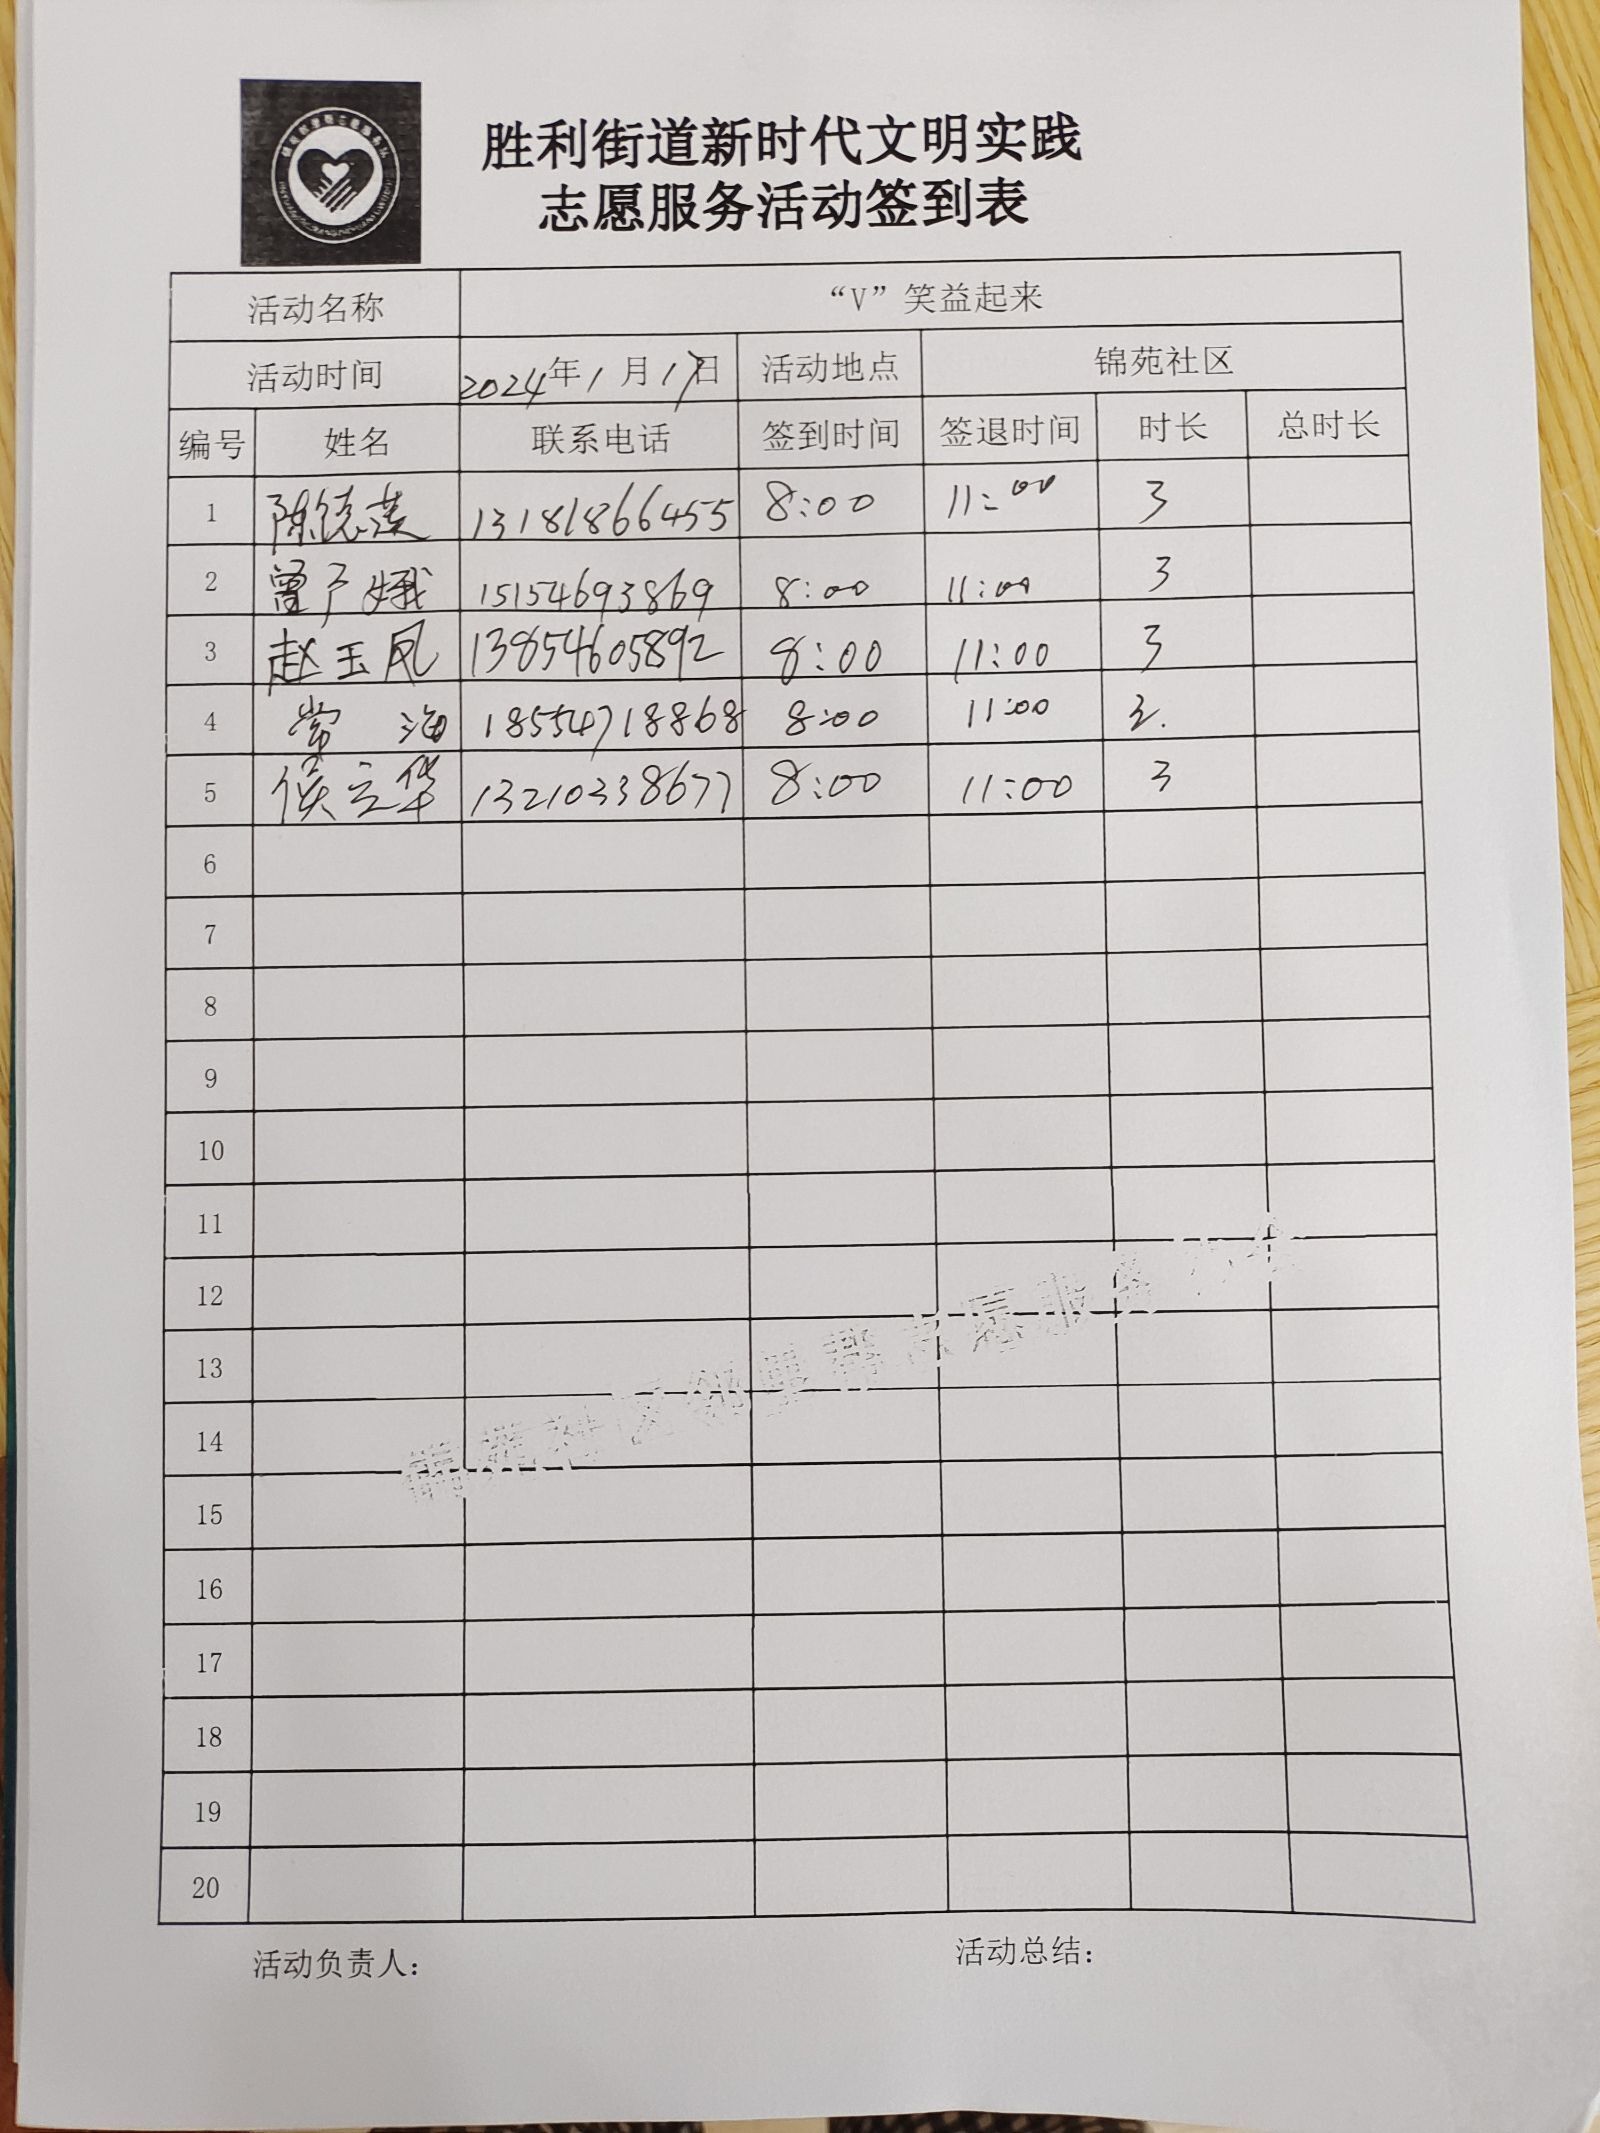 胜利街道新时代文明实践
志愿服务活动签到表
活动名称 “V”笑益起来
活动时间 2024年1月17日 活动地点 锦苑社区
编号 姓名 联系电话 签到时间 签退时间 时长 总时长
1 陈德 13181866455 8:00 11:00 3
2 曾广娥 15154693869 8:00 11:00 3
3 赵玉凤 13854605892 8:00 11:00 3
4 常海 18554718868 8:00 11:00 3.
5 侯立华 13210338677 8:00 11:00 3
6
7
8
9
10
11
12
13
14
15
16
17
18
19
20
锦苑社区邻里帮志愿服务协会
活动负责人: 活动总结: